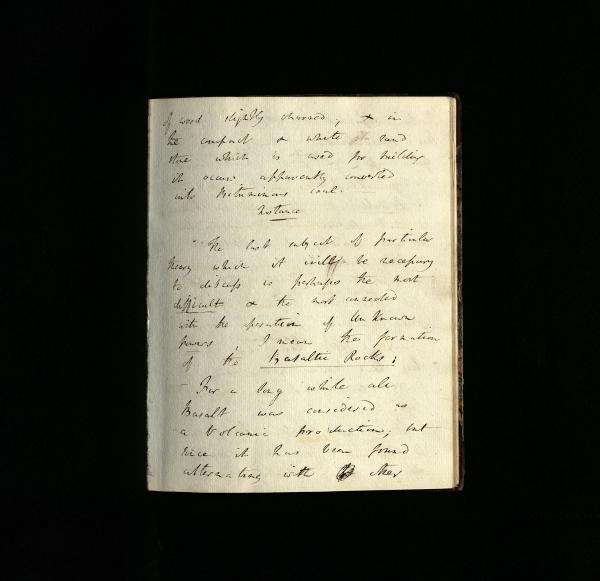 of wood slightly charred; & in
the compact & white sand
stone which is used for building
it occurs apparently converted
into bituminous coal. —
Instance
The last subject of particular
theory which it will be necessary
to discuss is perhaps the most
difficult & the most connected
with the operation of Unknown
powers, I mean the formation
of the Basaltic Rocks;
— For a long while all
Basalt was considered as
a Volcanic production; but
since it has been found
alternating with other